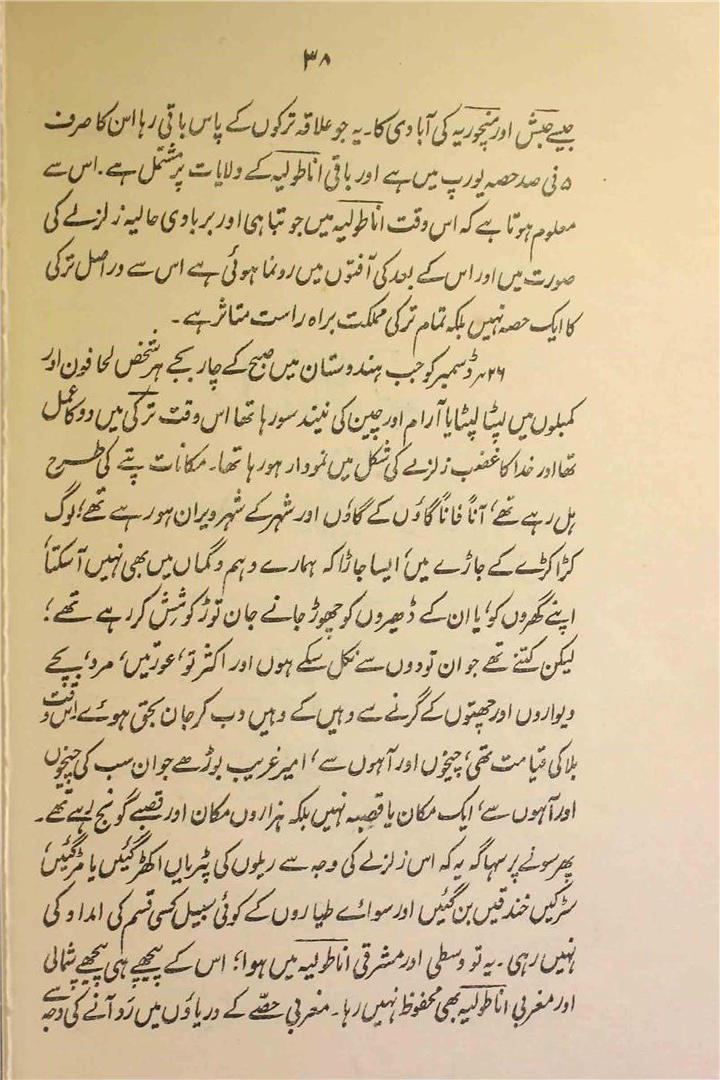 ۳۸
جیسے حبش اور منچوریہ کی آبادی کا۔ یہ جو علاقہ ترکوں کے پاس باقی رہا اس کا صرف
۵ فی صد حصہ یورپ میں ہے اور باقی اناطولیہ کے ولایات پر مشتمل ہے۔ اس سے
معلوم ہوتا ہے کہ اس وقت اناطولیہ میں جو تباہی اور بربادی حالیہ زلزلے کی
صورت میں اور اس کے بعد کی آفتوں میں رونما ہوئی ہے اس سے دراصل ترکی
کا ایک حصہ نہیں بلکہ تمام ترکی مملکت براہ راست متاثر ہے۔
۲۶ر ڈسمبر کو جب ہندوستان میں صبح کے چار بجے ہر شخص لحافون اور
کمبلوں میں لپٹا لپٹایا آرام اور چین کی نیند سو رہا تھا اس وقت ترکی میں دو کا عمل
تھا اور خدا کا غضب زلزلے کی شکل میں نمودار ہو رہا تھا۔ مکانات پتے کی طرح
ہل رہے تھے، آناً فاناً گاؤں کے گاؤں اور شہر کے شہر ویران ہو رہے تھے؛ لوگ
کڑا کڑے کے جاڑے میں، ایسا جاڑا کہ ہمارے وہم و گماں میں بھی نہیں آ سکتا،
اپنے گھروں کو، یا ان کے ڈھیروں کو چھوڑ جانے جان توڑ کوشش کر رہے تھے؛
لیکن کتنے تھے جو ان تودوں سے نکل سکے ہوں اور اکثر تو، عورتیں، مرد، بچے
دیواروں اور چھتوں کے گرنے سے وہیں کے وہیں دب کر جان بحق ہوئے اس وقت
بلا کی قیامت تھی، چیخوں اور آہوں سے، امیر غریب بوڑھے جوان سب کی چیخوں
اور آہوں سے، ایک مکان یا قصبہ نہیں بلکہ ہزاروں مکان اور قصبے گونج رہے تھے۔
پھر سونے پر سہاگہ یہ کہ اس زلزلے کی وجہ سے ریلوں کی پٹریاں اکھڑ گئیں یا مڑ گئیں،
سڑکیں خندقیں بن گئیں اور سوائے طیاروں کے کوئی سبیل کسی قسم کی امداد کی
نہیں رہی۔ یہ تو وسطی اور مشرقی اناطولیہ میں ہوا؛ اس کے پیچھے ہی پیچھے شمالی
اور مغربی اناطولیہ بھی محفوظ نہیں رہا۔ مغربی حصّے کے دریاؤں میں رَو آنے کی وجہ سے